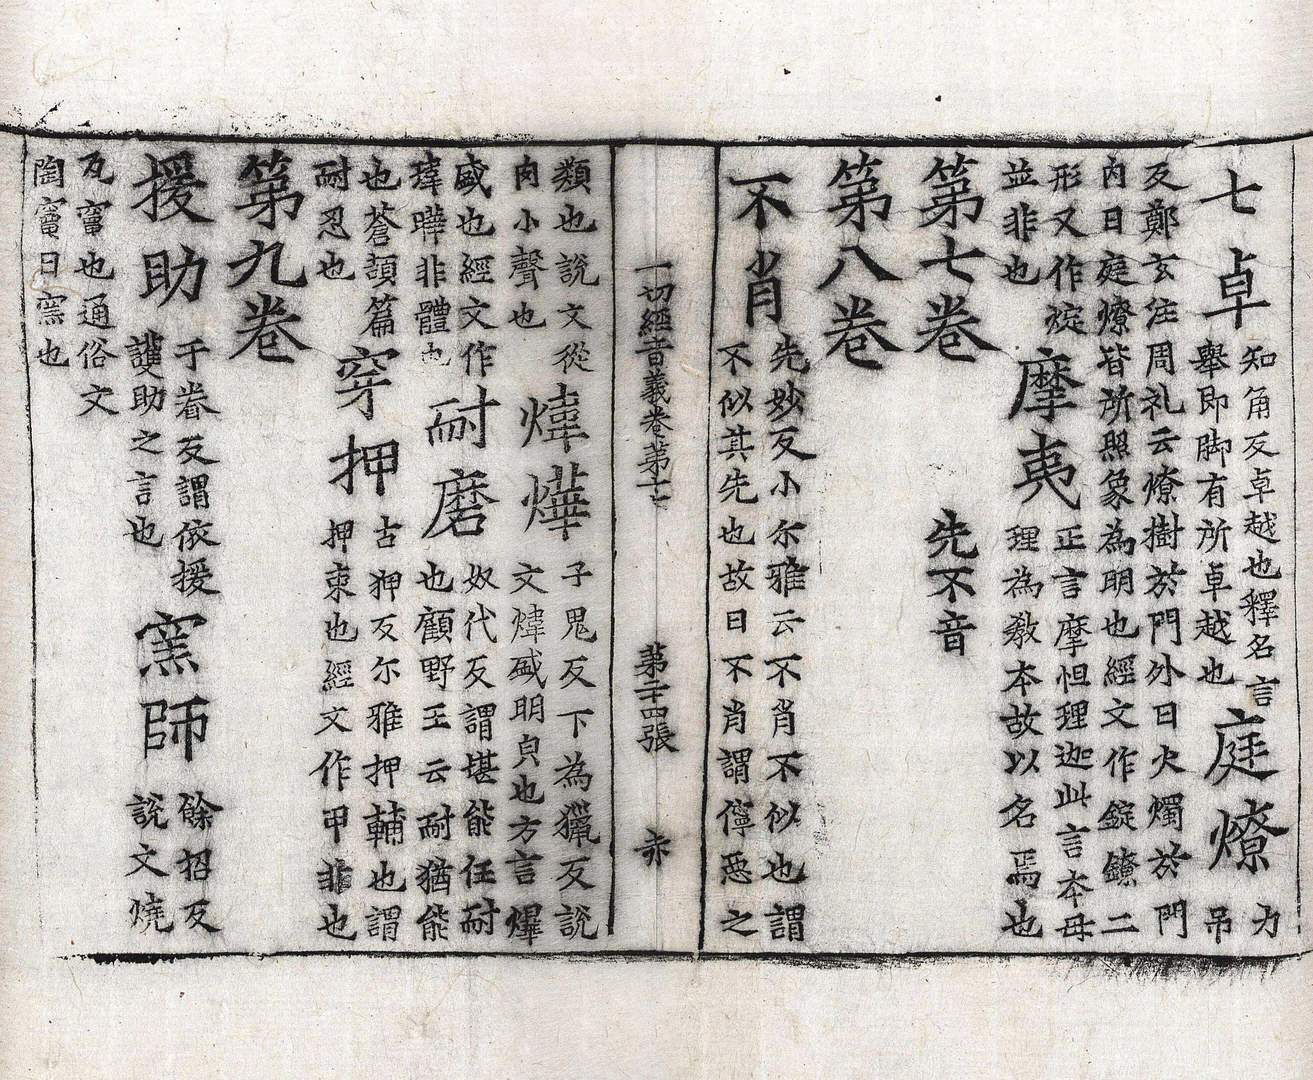 七卓 知角反卓越也釋名言
舉即脚有所卓越也 庭燎 力
吊
反鄭玄注周礼云燎樹於門外曰大燭於門
內曰庭燎皆所照象為明也經文作錠鐐二
形又作㝎 摩夷 正言摩怛理迦此言本母
並非也 理為教本故以名焉也
第七卷 先不音
第八卷
不肖 先妙反小尔雅云不肖不似也謂
不似其先也故曰不肖謂儜惡之
一切經音義卷第十七 第二十四張 赤
類也說文從 煒爗 子鬼反下為獵反說
肉小聲也 文煒盛明皃也方言爗
盛也經文作 耐磨 奴代反謂堪能任耐
瑋曄非體也 也顧野王云耐猶能
也蒼頡篇 穿押 古狎反尔雅押輔也謂
耐忍也 押束也經文作甲非也
第九卷
援助 于眷反謂依援
護助之言也 窯師 餘招反
說文燒
瓦竈也通俗文
陶竈曰窯也